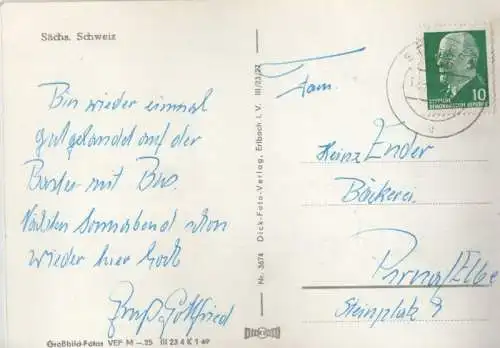 Sächs. Schweiz
Bin wieder einmal
gut gelandet auf der
Bastei mit Bus.
Nächsten Sonnabend schon
wieder hier
Gruß Gottfried
Großbild-Fotos VEP M -.25 III 23 4 K 1 69
Nr. 3674 Dick-Foto-Verlag, Erlbach i. V. III/23/27
Fam.
Heinz Ender
Bäckerei
Pirna/Elbe
Steinplatz
10
DEUTSCHE
DEMOKRATISCHE REPUBLIK